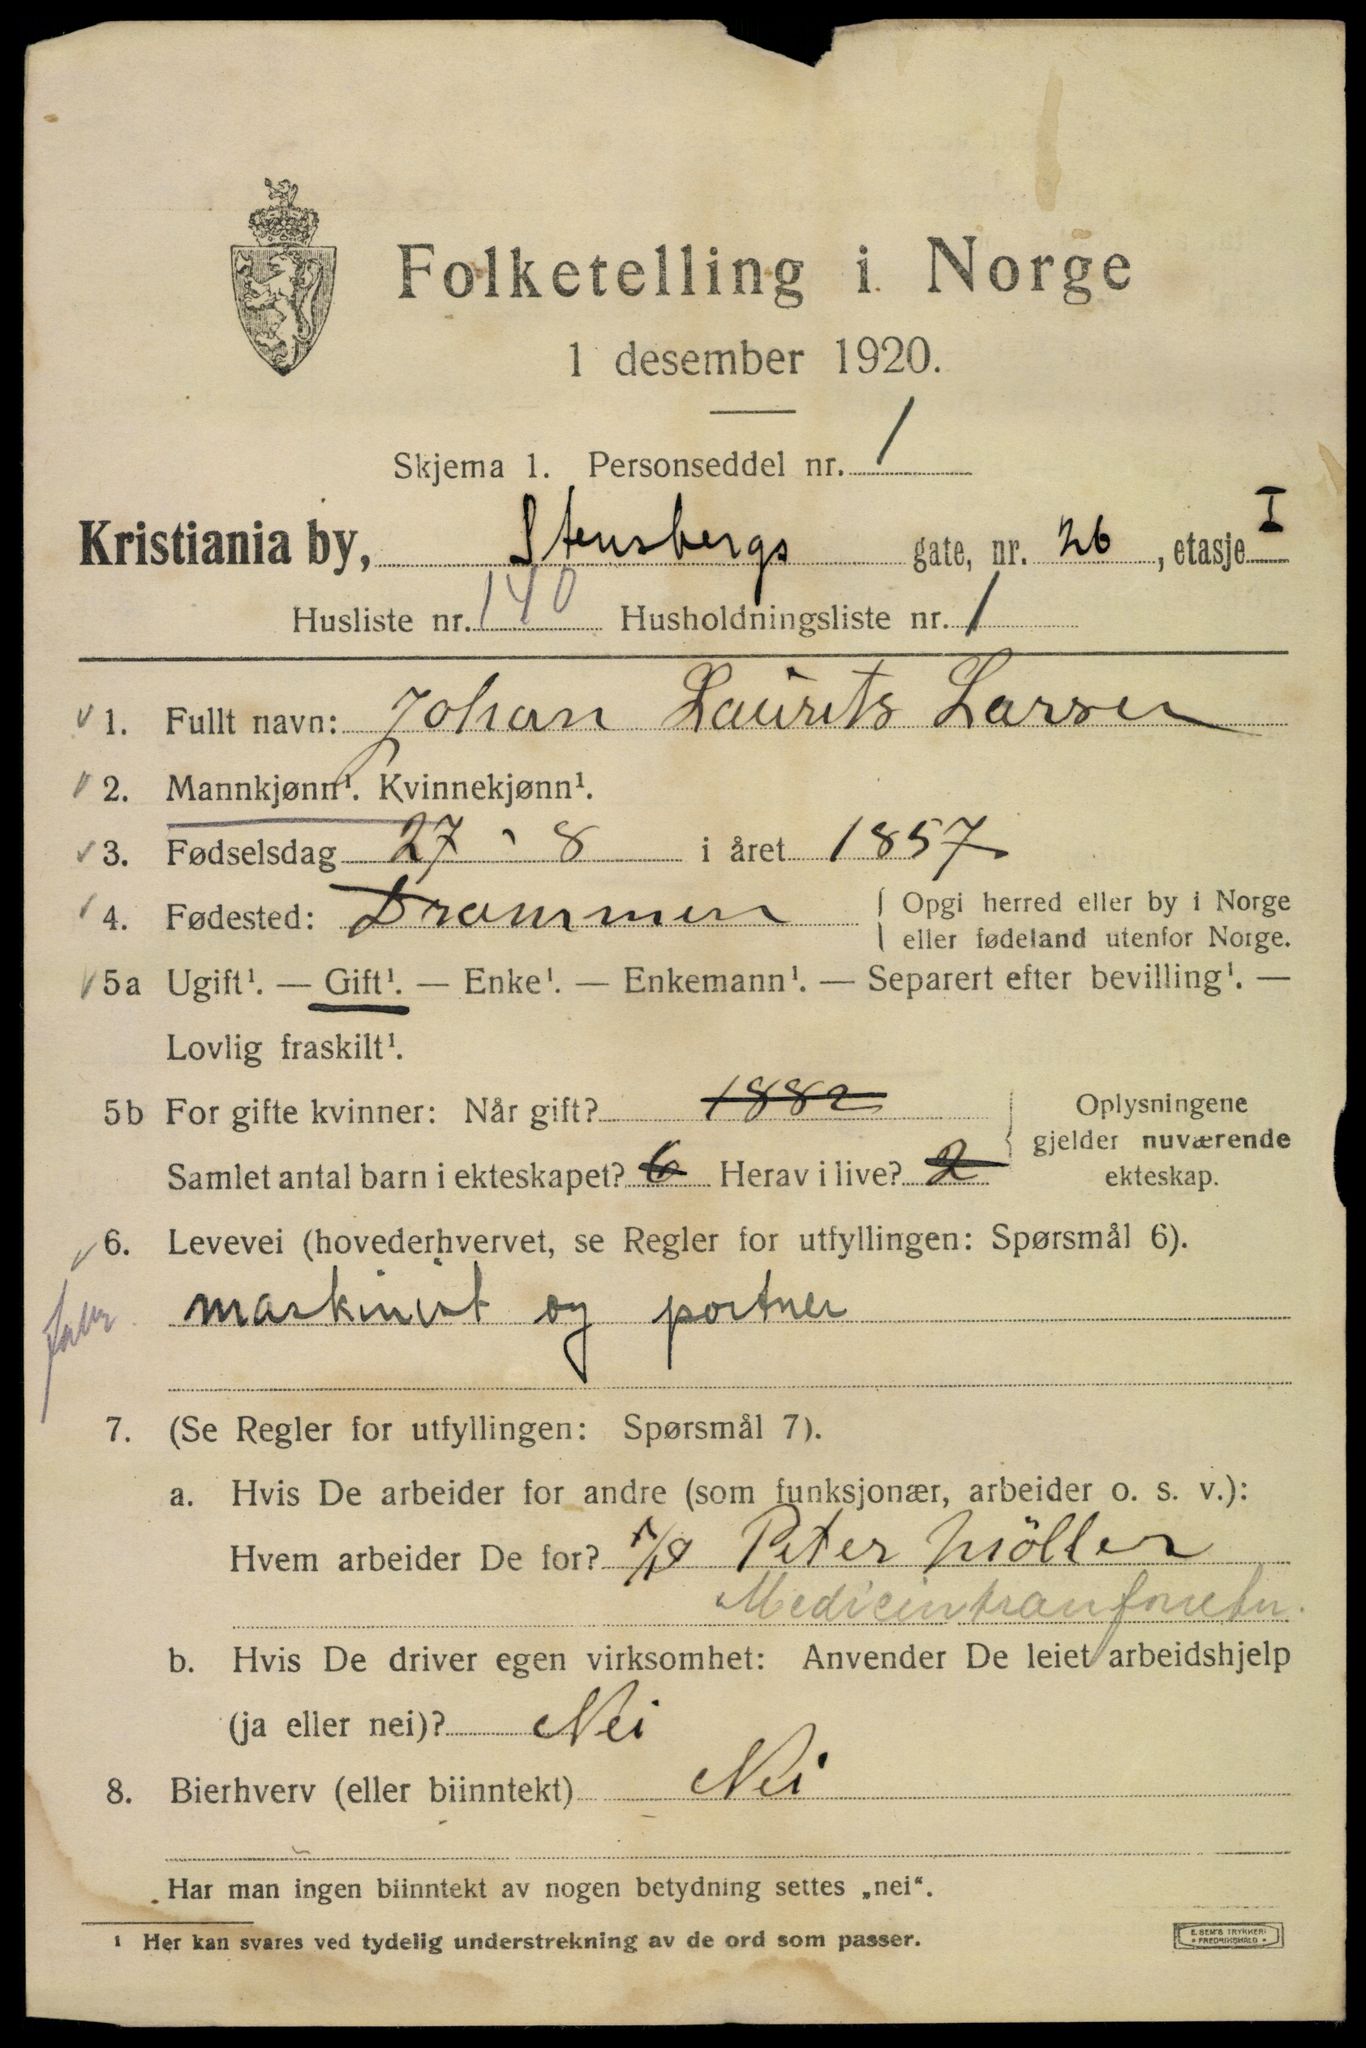 Folketelling i Norge
1 desember 1920.
Skjema 1. Personseddel nr. 1
Kristiania by, Stensbergs gate, nr. 26, etasje I
Husliste nr. 140 Husholdningsliste nr. 1
1. Fullt navn: Johan Laurits Larsen
2. Mannkjønn¹. Kvinnekjønn¹.
3. Fødselsdag 27 8 i året 1857
4. Fødested: Drammen Opgi herred eller by i Norge
eller fødeland utenfor Norge.
5a Ugift¹. — Gift¹. — Enke¹. — Enkemann¹. — Separert efter bevilling¹. —
Lovlig fraskilt¹.
5b For gifte kvinner: Når gift? 1882 Oplysningene
gjelder nuværende
Samlet antal barn i ekteskapet? 6 Herav i live? 2 ekteskap.
6. Levevei (hovederhvervet, se Regler for utfyllingen: Spørsmål 6).
maskinist og portner
7. (Se Regler for utfyllingen: Spørsmål 7).
a. Hvis De arbeider for andre (som funksjonær, arbeider o. s. v.):
Hvem arbeider De for? A/S Peter Möller
b. Hvis De driver egen virksomhet: Anvender De leiet arbeidshjelp
(ja eller nei)? Nei
8. Bierhverv (eller biinntekt) Nei
Har man ingen biinntekt av nogen betydning settes „nei“.
¹ Her kan svares ved tydelig understrekning av de ord som passer.
E. SEM'S TRYKKERI
FREDRIKSHALD